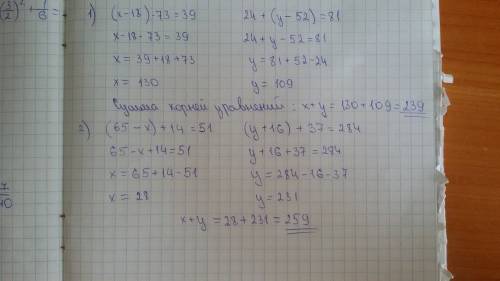 (3/2)² + 1/6 =
1) (x-18)-73=39 24+(y-52)=81
x-18+73=39 24+y-52=81
x=39+18+73 y=81+52-24
x=130 y=109
Сумма корней уравнений: x+y=130+109=239
2) (65-x)+14=51 (y+16)+37=284
65-x+14=51 y+16+37=284
x=65+14-51 y=284-16-37
x=28 y=231
x+y=28+231=259